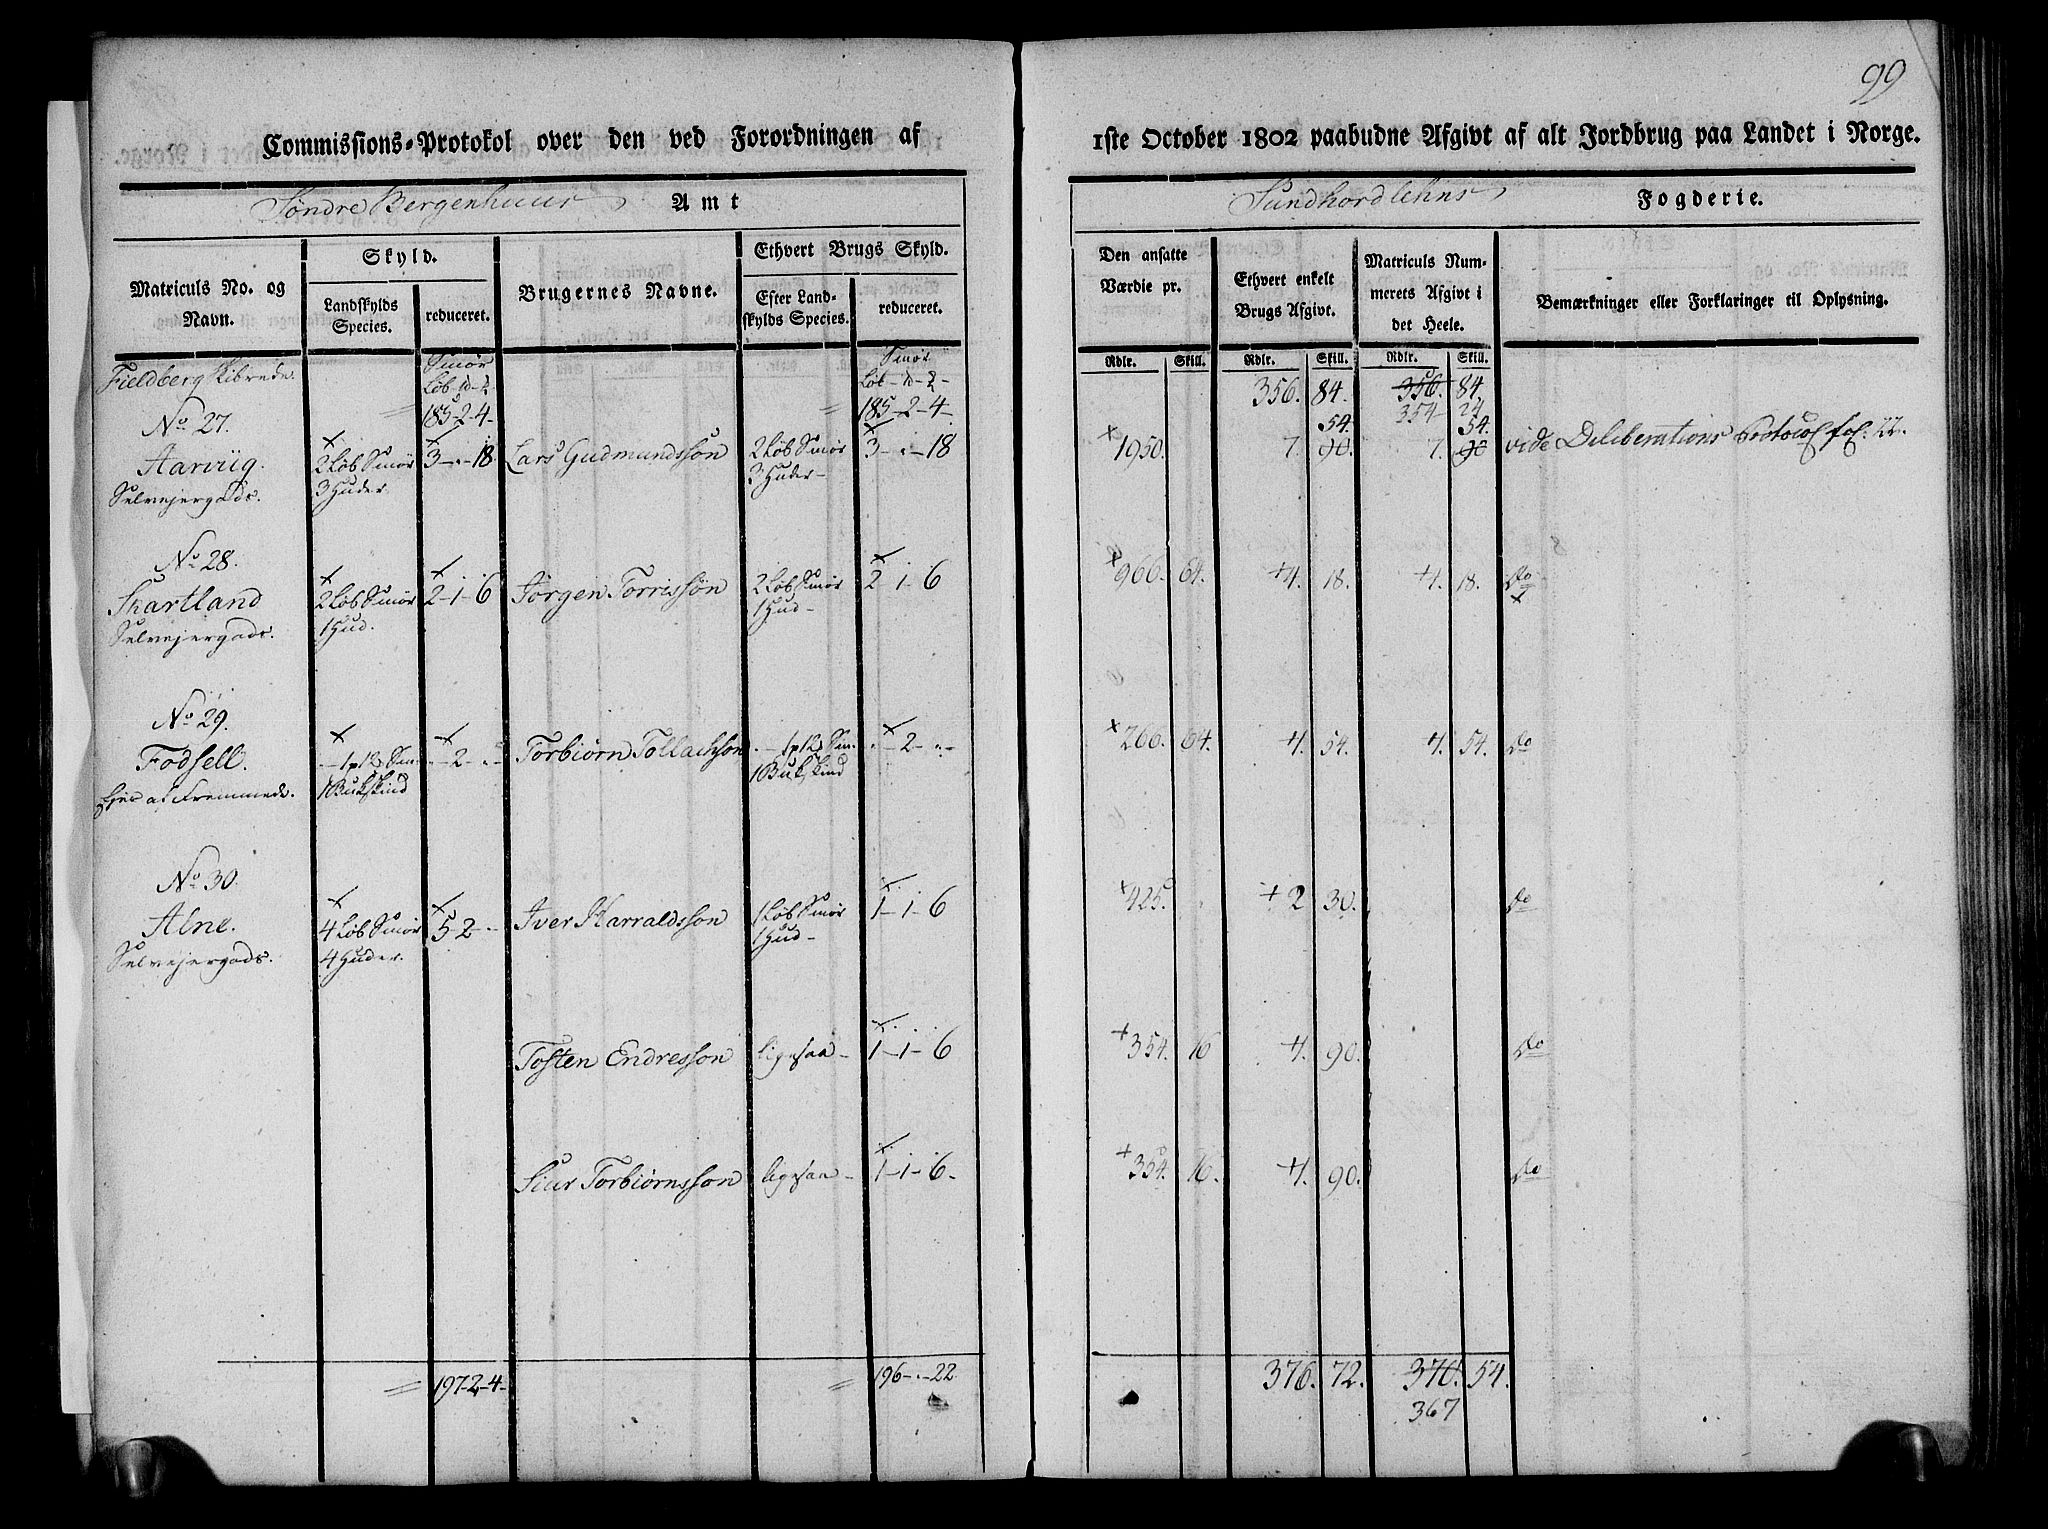 99
Commissions-Protokol over den ved Forordningen af 1ste October 1802 paabudne Afgivt af alt Jordbrug paa Landet i Norge.
Søndre Bergenhuus Amt
Sundhordlehns Fogderie.
Matriculs No. og Navn.
Skyld.
Landskylds Species.
reduceret.
Brugernes Navne.
Ethvert Brugs Skyld.
Efter Landskylds Species.
reduceret.
Den ansatte Værdie pr.
Ethvert enkelt Brugs Afgivt.
Matriculs Nummerets Afgivt i det Heele.
Bemærkninger eller Forklaringer til Oplysning.
Rdlr. Skill. Rdlr. Skill. Rdlr. Skill.
Fieldberg Skibrede. Smør Smør
Løb Løb
185-2-4- 185-2-4- 356. 84. 356. 84.
354 24
No 27. 54. 54.
Aarviig. 2 Løb Smør 3-"-18 Lars Gudmundssøn 2 Løb Smør 3-"-18 1950. 7. 90. 7. 90 vide Deliberations Protocol fol. 77.
Selvejergods. 3 Huder. 3 Huder-
No 28.
Skartland 2 Løb Smør 2-1-6 Jørgen Torrissøn 2 Løb Smør 2-1-6 966. 64. 4. 18. 4. 18. do
Selvejergods. 1 Hud. 1 Hud-
No 29.
Fodsell. -1p12 Sm. "-2-"- Torbiørn Tollachson -1p12 Sm. "-2-"- 266. 64. 4. 54. 4. 54. do
Ejes af Fremmede. 1 Bukskind 1 Bukskind
No 30.
Alne. 4 Løb Smør 5-2-" Iver Harraldssøn 1 Løb Smør 1-1-6 425. 2 30. do
Selvejergods. 4 Huder. 1 Hud-
Tosten Endressøn ligesaa- 1-1-6 354. 16 4. 90. do
Siur Torbiørnssøn ligesaa- 1-1-6- 354. 16. 4. 90. do
197-2-4- 196-"-22 376. 72. 370. 54.
367